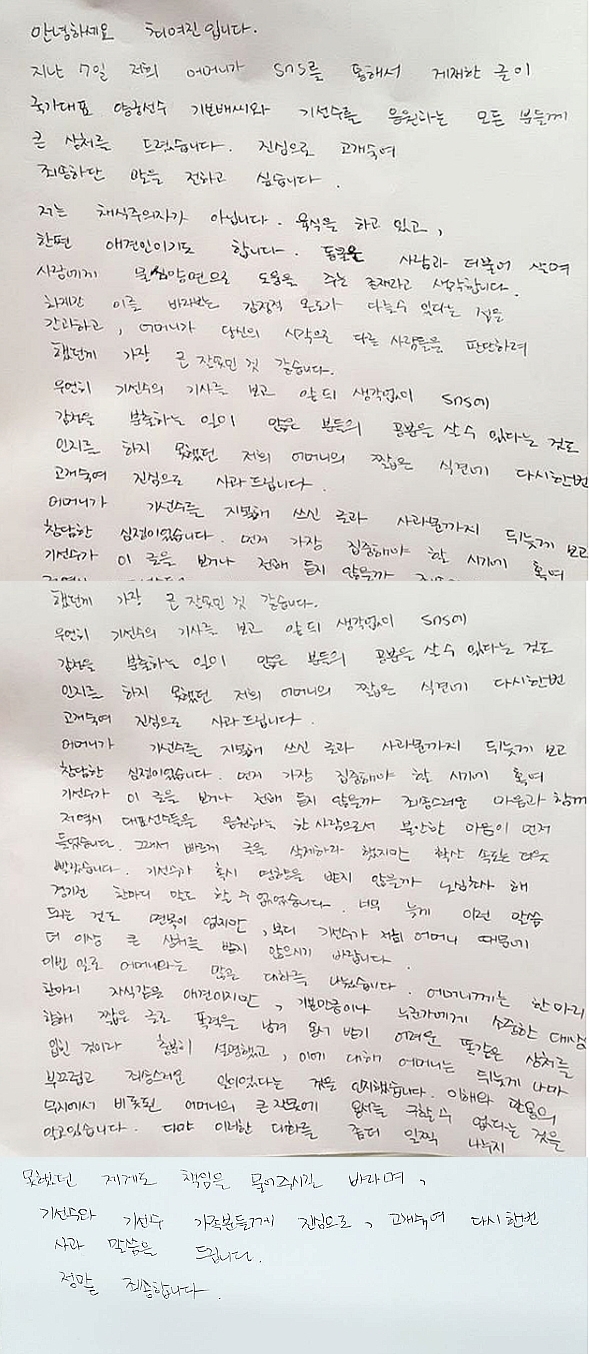 안녕하세요 최여진입니다.
지난 7일 저희 어머니가 SNS를 통해서 게재한 글이
국가대표 양궁선수 기보배씨와 기선수를 응원하는 모든 분들께
큰 상처를 드렸습니다. 진심으로 고개숙여
죄송하단 말을 전하고 싶습니다.
저는 채식주의자가 아닙니다. 육식을 하고 있고,
한편 애견인이기도 합니다. 동물은 사람과 더불어 살며
사람에게 물심양면으로 도움을 주는 존재라고 생각합니다.
하지만 이를 바라보는 감정적 온도가 다를수 있다는 점을
간과하고, 어머니가 당신의 시각으로 다른 사람들을 판단하려
했던게 가장 큰 잘못인 것 같습니다.
우연히 기선수의 기사를 보고 앞뒤 생각없이 SNS에
감정을 분출하는 일이 많은 분들의 공분을 살 수 있다는 것도
인지를 하지 못했던 저희 어머니의 짧은 식견에 다시한번
고개숙여 진심으로 사과드립니다.
어머니가 기선수를 지목해 쓰신 글과 사과문까지 뒤늦게 보고
참담한 심정이었습니다. 먼저 가장 집중해야 할 시기에 혹여
기선수가 이 글을 보거나 전해 듣지 않을까
했던게 가장 큰 잘못인 것 같습니다.
우연히 기선수의 기사를 보고 앞뒤 생각없이 SNS에
감정을 분출하는 일이 많은 분들의 공분을 살 수 있다는 것도
인지를 하지 못했던 저희 어머니의 짧은 식견에 다시한번
고개숙여 진심으로 사과드립니다.
어머니가 기선수를 지목해 쓰신 글과 사과문까지 뒤늦게 보고
참담한 심정이었습니다. 먼저 가장 집중해야 할 시기에 혹여
기선수가 이 글을 보거나 전해 듣지 않을까 죄송스러운 마음과 함께
저역시 대표선수들을 응원하는 한 사람으로서 불안한 마음이 먼저
들었습니다. 그래서 바르게 글을 삭제하라 했지만 확산 속도는 더욱
빨랐습니다. 기선수가 혹시 영향을 받지 않을까 노심초사 해
경기전 한마디 말도 할 수 없었습니다. 너무 늦게 이런 말씀
드리는 것도 면목이 없지만, 부디 기선수가 저희 어머니 때문에
더 이상 큰 상처를 받지 않으시기 바랍니다.
이번 일로 어머니와는 많은 대화를 나눴습니다. 어머니께는 한마리
한마리 자식같은 애견이지만, 기분만큼이나 누군가에게 소중한 대상
향해 짧은 글로 폭력을 남겨 용서 받기 어려운 똑같은 상처를
입힌 것이라 충분히 설명했고, 이에 대해 어머니는 뒤늦게 나마
부끄럽고 죄송스러운 일이었다는 것을 인지했습니다. 이해와 관용의
무지에서 비롯된 어머니의 큰 잘못에 용서를 구할 수 없다는 것을
알고있습니다. 다만 이러한 대화를 좀더 일찍 나누지
못했던 제게도 책임을 물어주시길 바라며,
기선수와 기선수 가족분들께 진심으로, 고개숙여 다시한번
사과 말씀을 드립니다.
정말 죄송합니다.